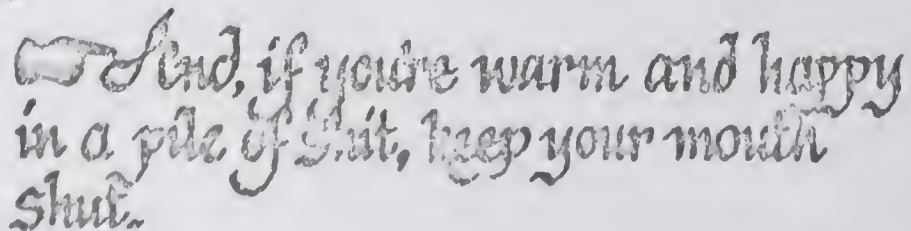 And, if you're warm and happy
in a pile of shit, keep your mouth
shut.